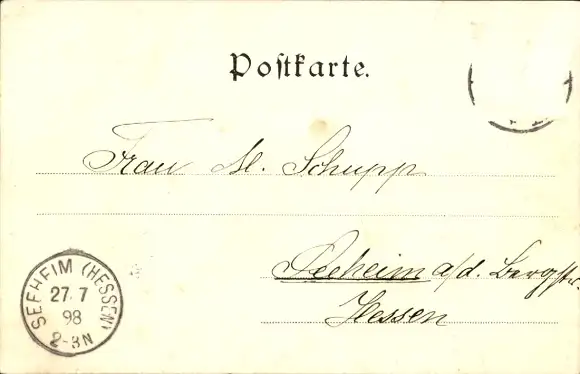 Postkarte.
Frau M. Schupp
Seeheim a/d. Bergstr.
Hessen
SEEHEIM (HESSEN)
27.7
98
2-3N